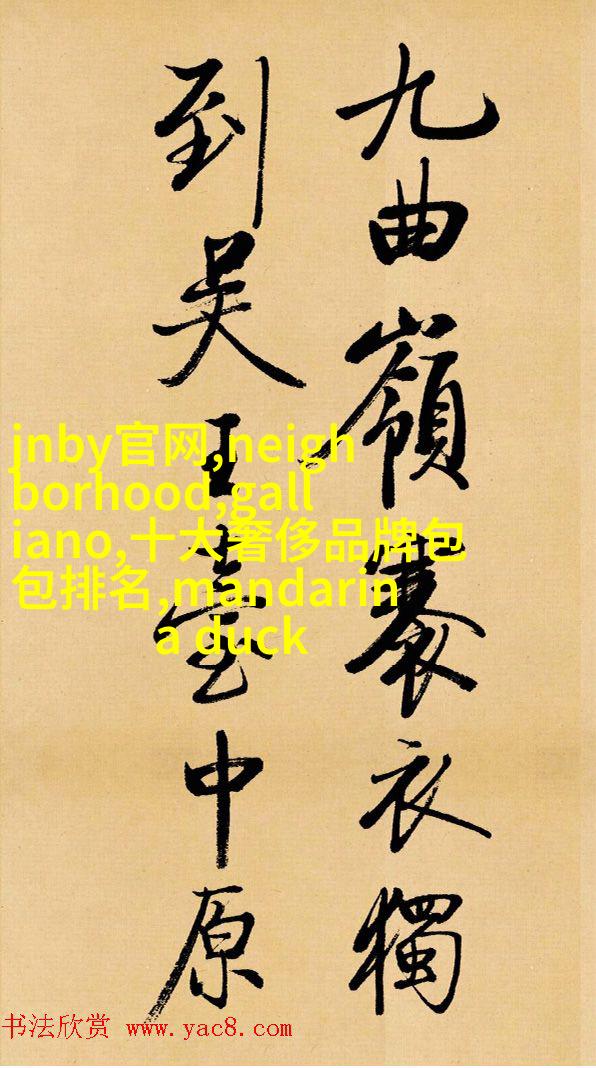 九曲嶺褰衣獨
到吴王臺中原
jnby官网,neigh
borhood,gall
iano,十大奢侈品牌包
包排名,mandarin
a duck
书法欣赏 www.yac8.com